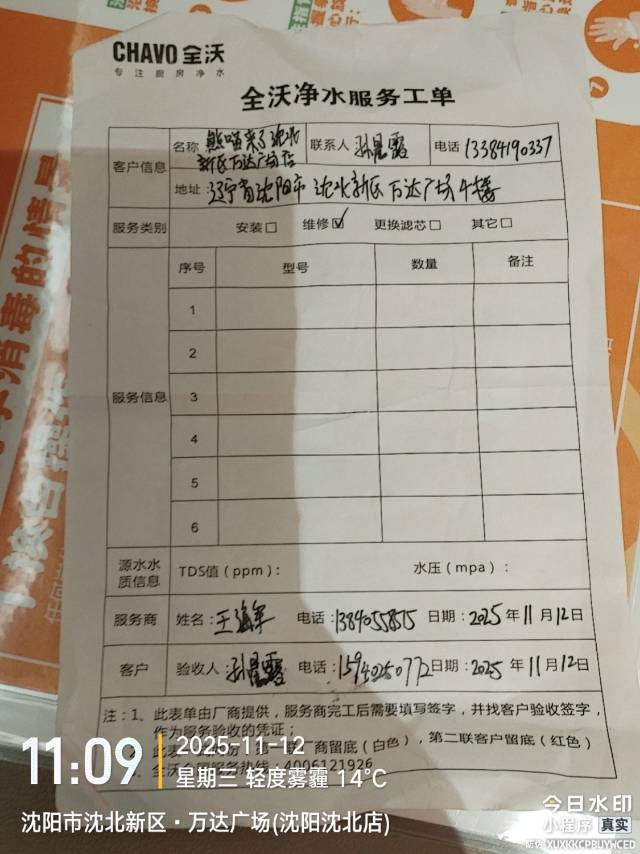 CHAVO 全沃
专注厨房净水
全沃净水服务工单
客户信息
名称 熊喵来了沈北新区万达广场店
联系人 孙晨露
电话 13384190337
地址：辽宁省沈阳市沈北新区万达广场4楼
服务类别 安装□ 维修☑ 更换滤芯□ 其它□
服务信息
序号 型号 数量 备注
1
2
3
4
5
6
源水水质信息 TDS值（ppm）： 水压（mpa）：
服务商 姓名：王海军 电话：13840558575 日期：2025年11月12日
客户 验收人：孙晨露 电话：15940250772 日期：2025年11月12日
注：1、此表单由厂商提供，服务商完工后需要填写签字，并找客户验收签字，
作为服务验收的凭证；
此表 厂商留底（白色），第二联客户留底（红色）
全沃 服务热线：4006121926
11:09
2025-11-12
星期三 轻度雾霾 14°C
沈阳市沈北新区·万达广场(沈阳沈北店)
今日水印
小程序 真实
防伪 XUXKKCPBUYWCED